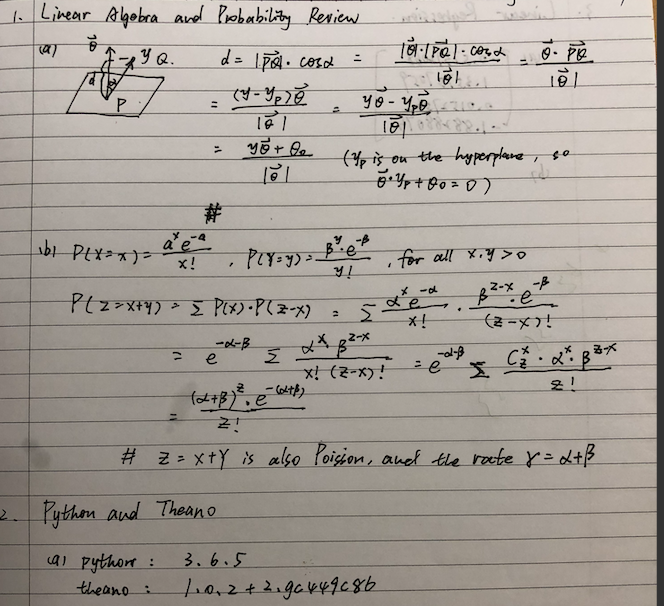 1. Linear Algebra and Probability Review
(a) θ⃗ y Q. d α P d = |P⃗Q|· cosα = |θ⃗|·|P⃗Q|·cosα / |θ⃗| = θ⃗·P⃗Q / |θ⃗|
= (y-yₚ)θ⃗ / |θ⃗| = yθ⃗ - yₚθ⃗ / |θ⃗|
= yθ⃗ + θ₀ / |θ⃗| (yₚ is on the hyperplane, so
θ⃗·yₚ + θ₀ = 0)
#
(b) P(X=x) = a^x e^-a / x! , P(Y=y) = β^y e^-β / y! , for all x,y>0
P(Z=x+y) = Σ P(x)·P(z-x) = Σ α^x e^-α / x! · β^z-x · e^-β / (z-x)!
= e^-α-β Σ α^x · β^z-x / x! (z-x)! = e^-α-β Σ C_z^x · α^x · β^z-x / z!
= (α+β)^z · e^-(α+β) / z!
# Z = X+Y is also Poission, and the rate γ = α+β
2. Python and Theano
(a) python : 3.6.5
theano : 1.0.2+2.gc449c86